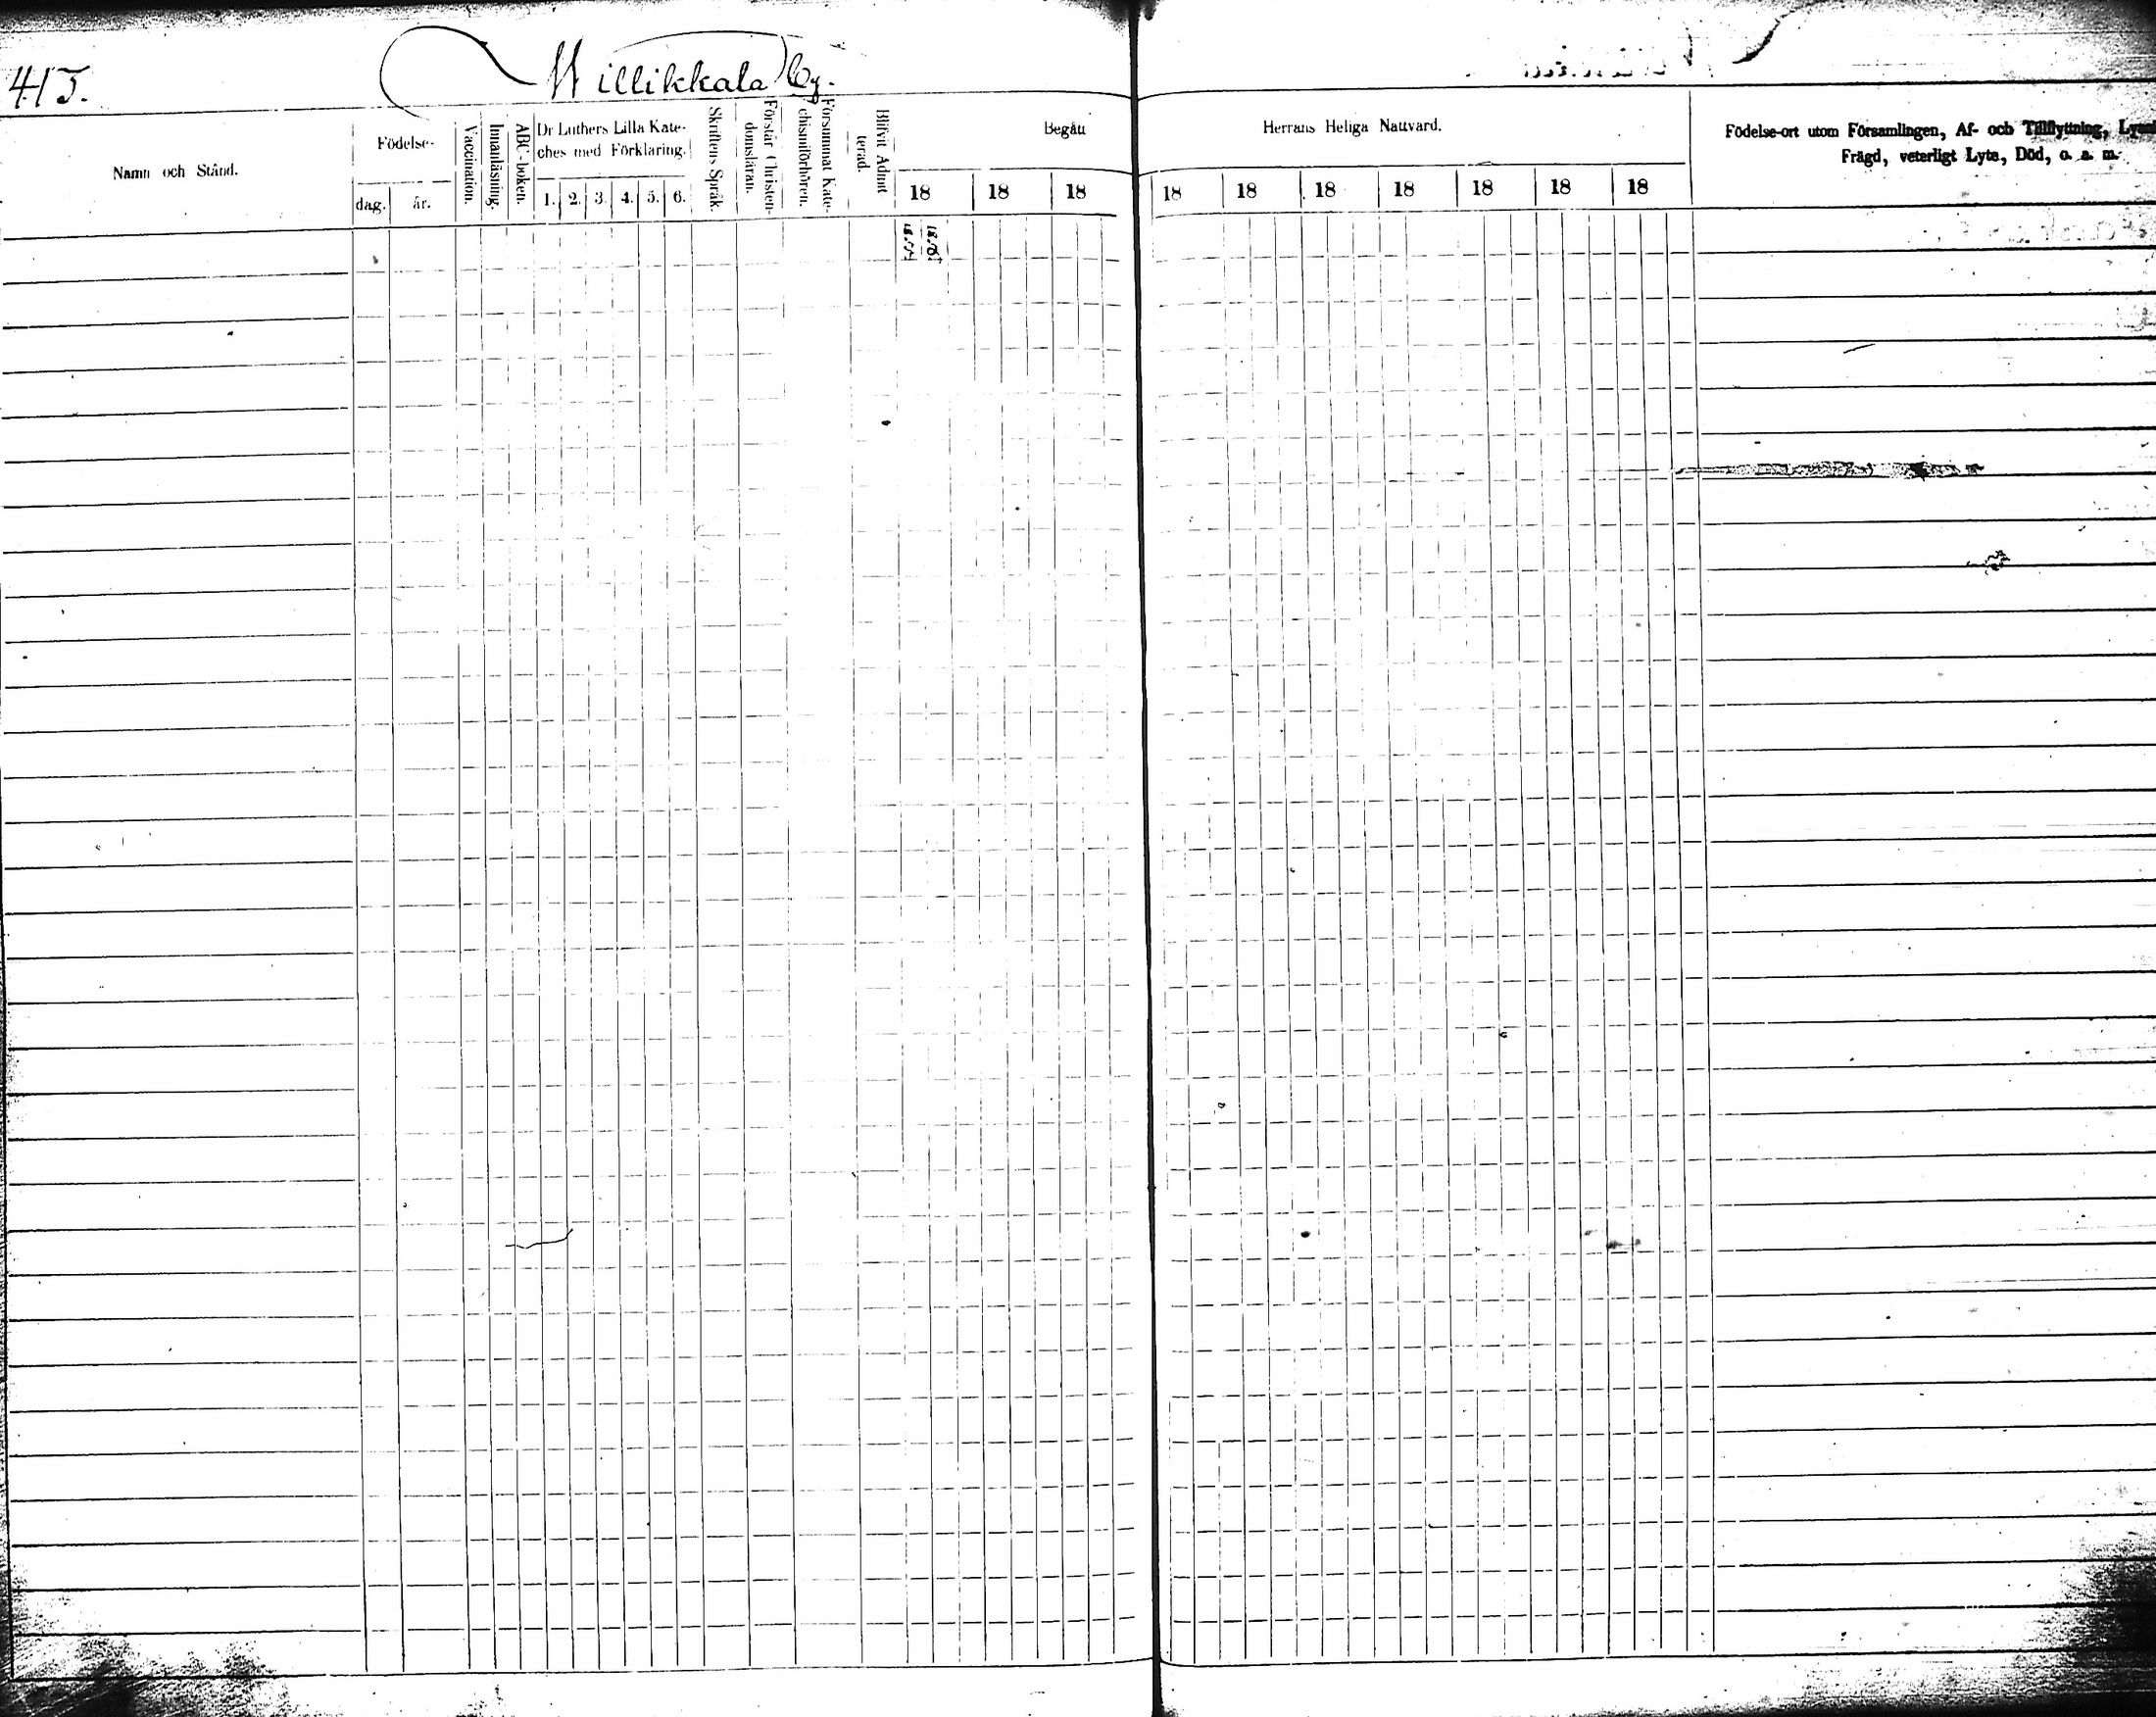 415.
Willikkala by.
Namn och Stånd.
Födelse-
dag.
år.
Vaccination.
Innanläsning.
ABC-boken.
Dr Luthers Lilla Kate-
ches med Förklaring.
1. 2. 3. 4. 5. 6.
Skriftens Språk.
Förstår Christen-
domsläran.
Försummat Kate-
chismiförhören.
Blifvit Admit
terad.
Begått
18 18 18
Herrans Heliga Nattvard.
18 18 18 18 18 18 18
Födelse-ort utom Församlingen, Af- och Tillflyttning,
Frägd, veterligt Lyte, Död, o. a. m.